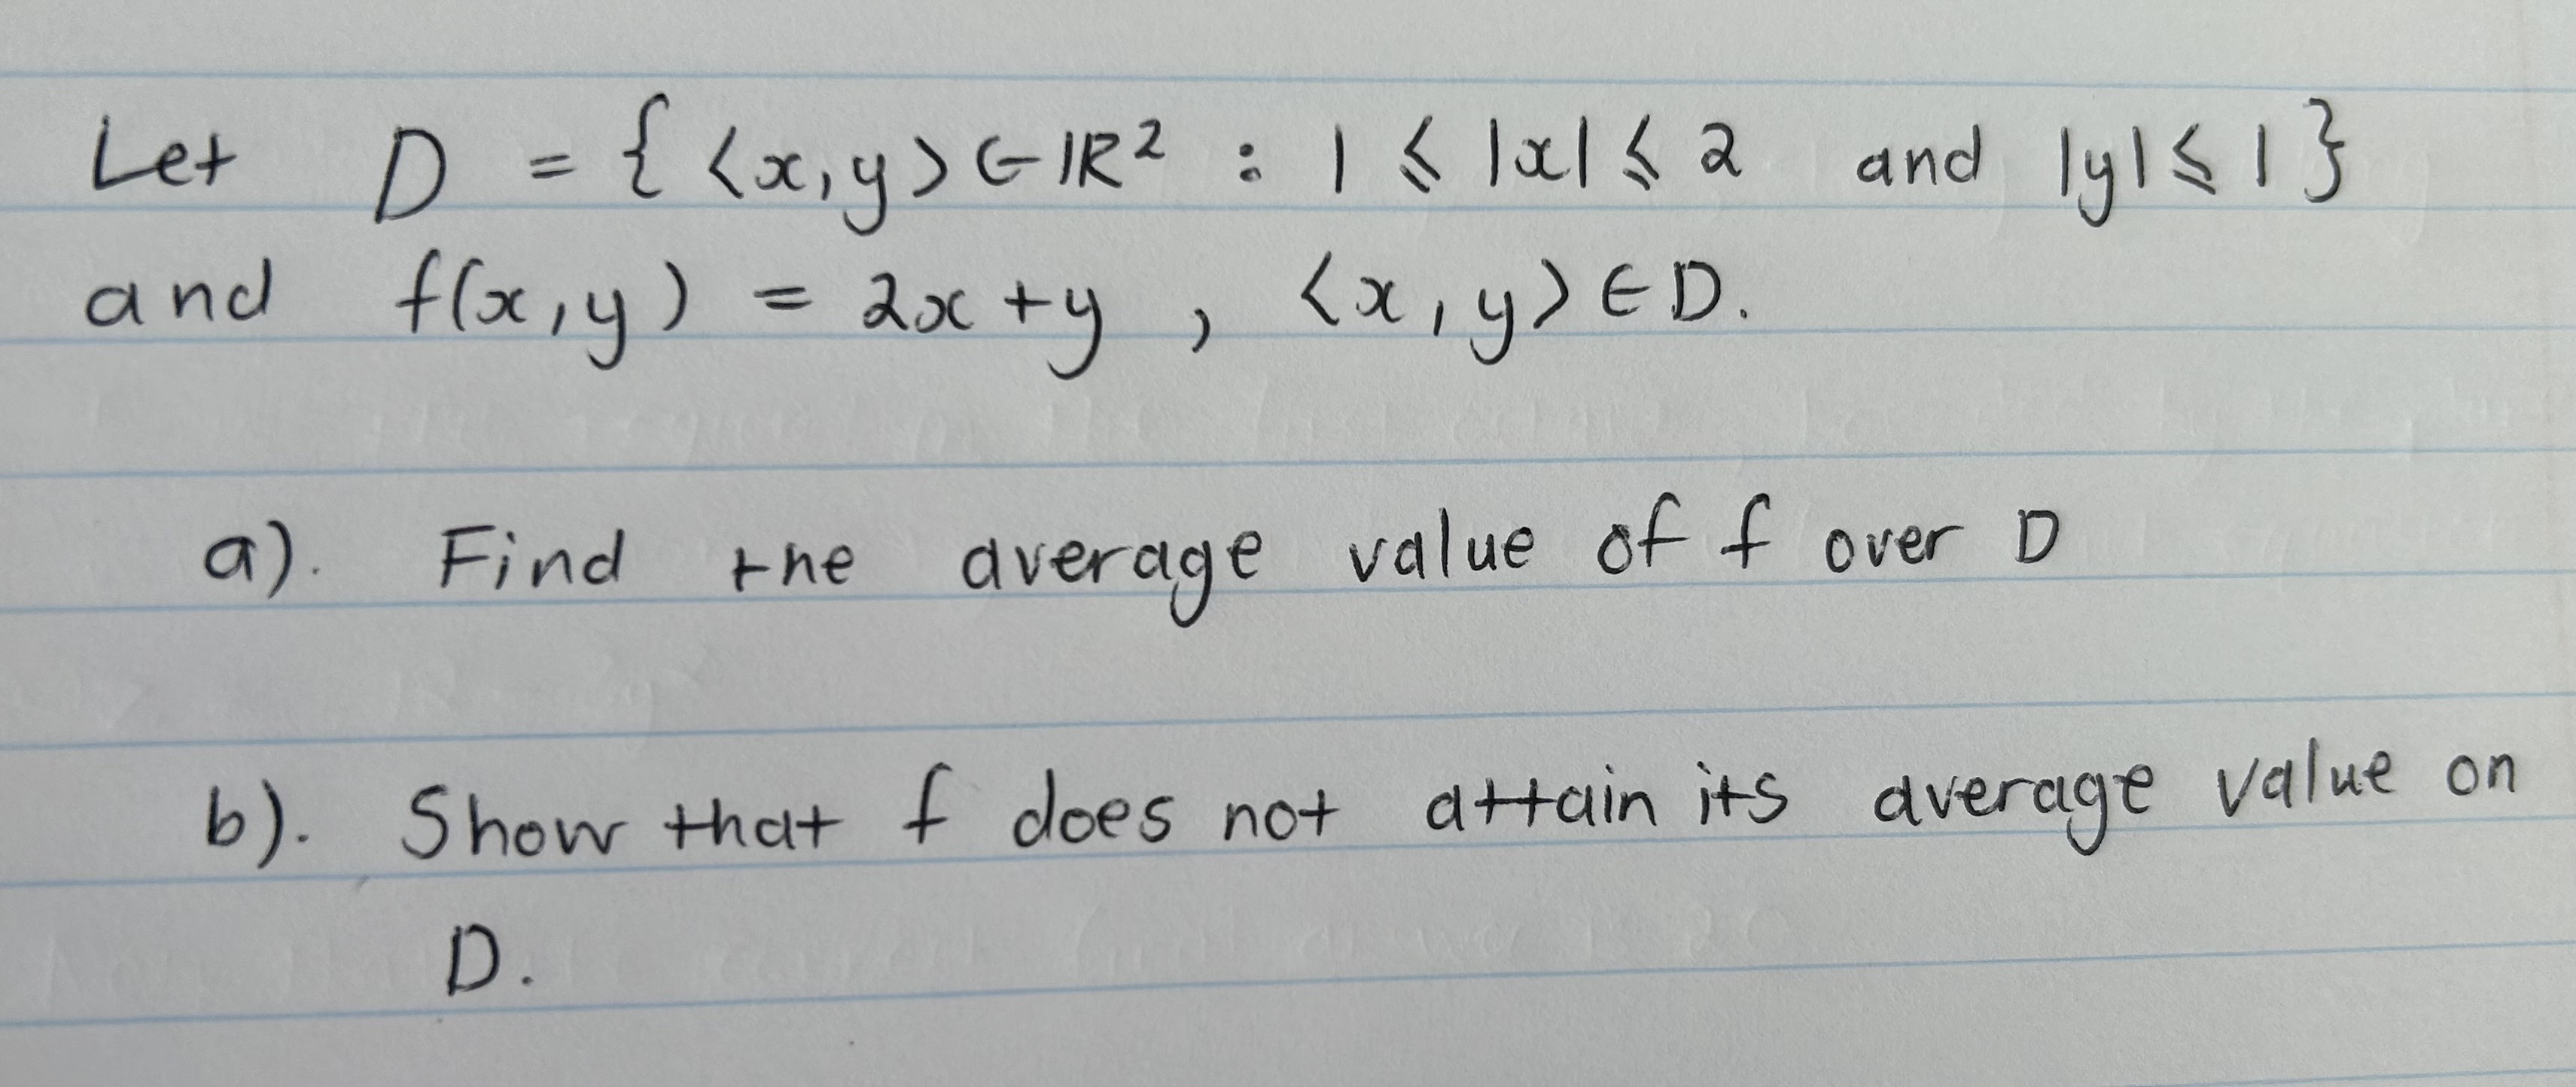 Let D = { <x,y> ∈ ℝ² : 1 ⩽ |x| ⩽ 2 and |y| ⩽ 1 }
and f(x,y) = 2x+y , <x,y> ∈ D.
a). Find the average value of f over D
b). Show that f does not attain its average value on
D.